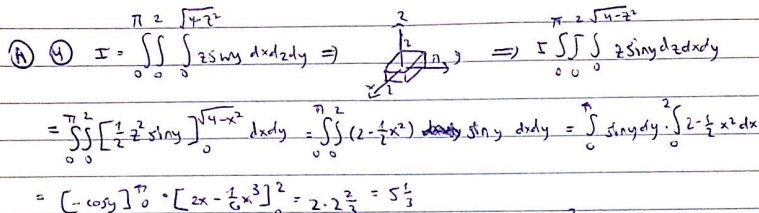 A 4 I = ∫₀^π ∫₀^2 ∫₀^√(4-z²) z siny dxdzdy ⇒ z 2 π y x 2 ⇒ I ∫₀^π ∫₀^2 ∫₀^√(4-z²) z siny dzdxdy
= ∫₀^π ∫₀^2 [½ z² siny]₀^√(4-x²) dxdy = ∫₀^π ∫₀^2 (2-½x²) siny dxdy = ∫₀^π siny dy · ∫₀^2 2-½x² dx
= [-cosy]₀^π · [2x - ⅙x³]₀^2 = 2·2⅔ = 5⅓